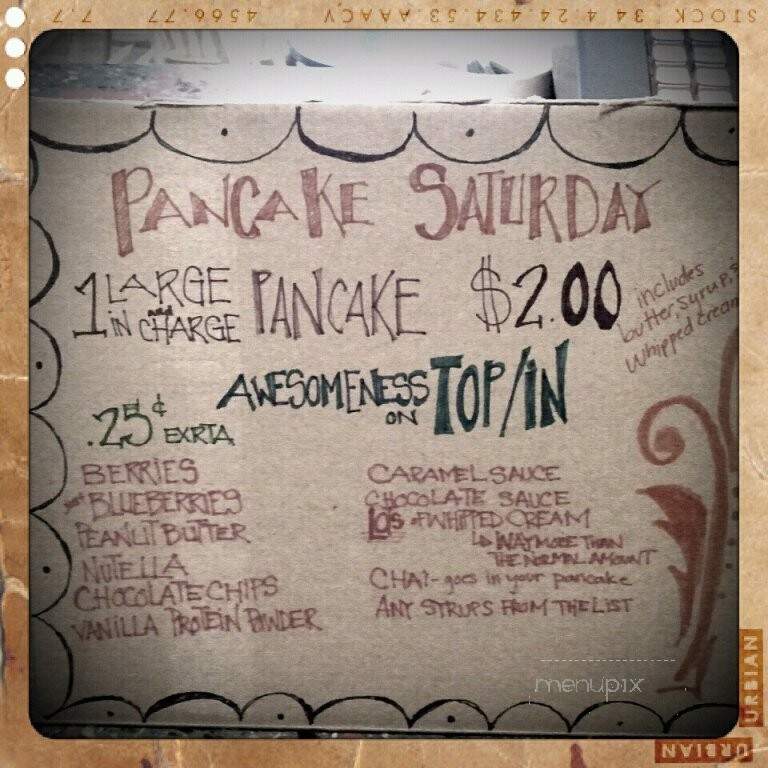 STOCK 34 4 24.434.53 AAACV 4566.77 7.7
PANCAKE SATURDAY
1 LARGE and IN CHARGE PANCAKE $2.00
includes
butter, syrup, &
whipped cream
AWESOMENESS ON TOP/IN
.25¢ EXRTA
BERRIES
BLUEBERRIES
PEANUT BUTTER
NUTELLA
CHOCOLATE CHIPS
VANILLA PROTEIN POWDER
CARAMEL SAUCE
CHOCOLATE SAUCE
LOTS of WHIPPED CREAM
↳ WAY MORE THAN
THE NORMAL AMOUNT
CHAI - goes in your pancake
ANY SYRUPS FROM THE LIST
menupix
URBIAN
URBIAN